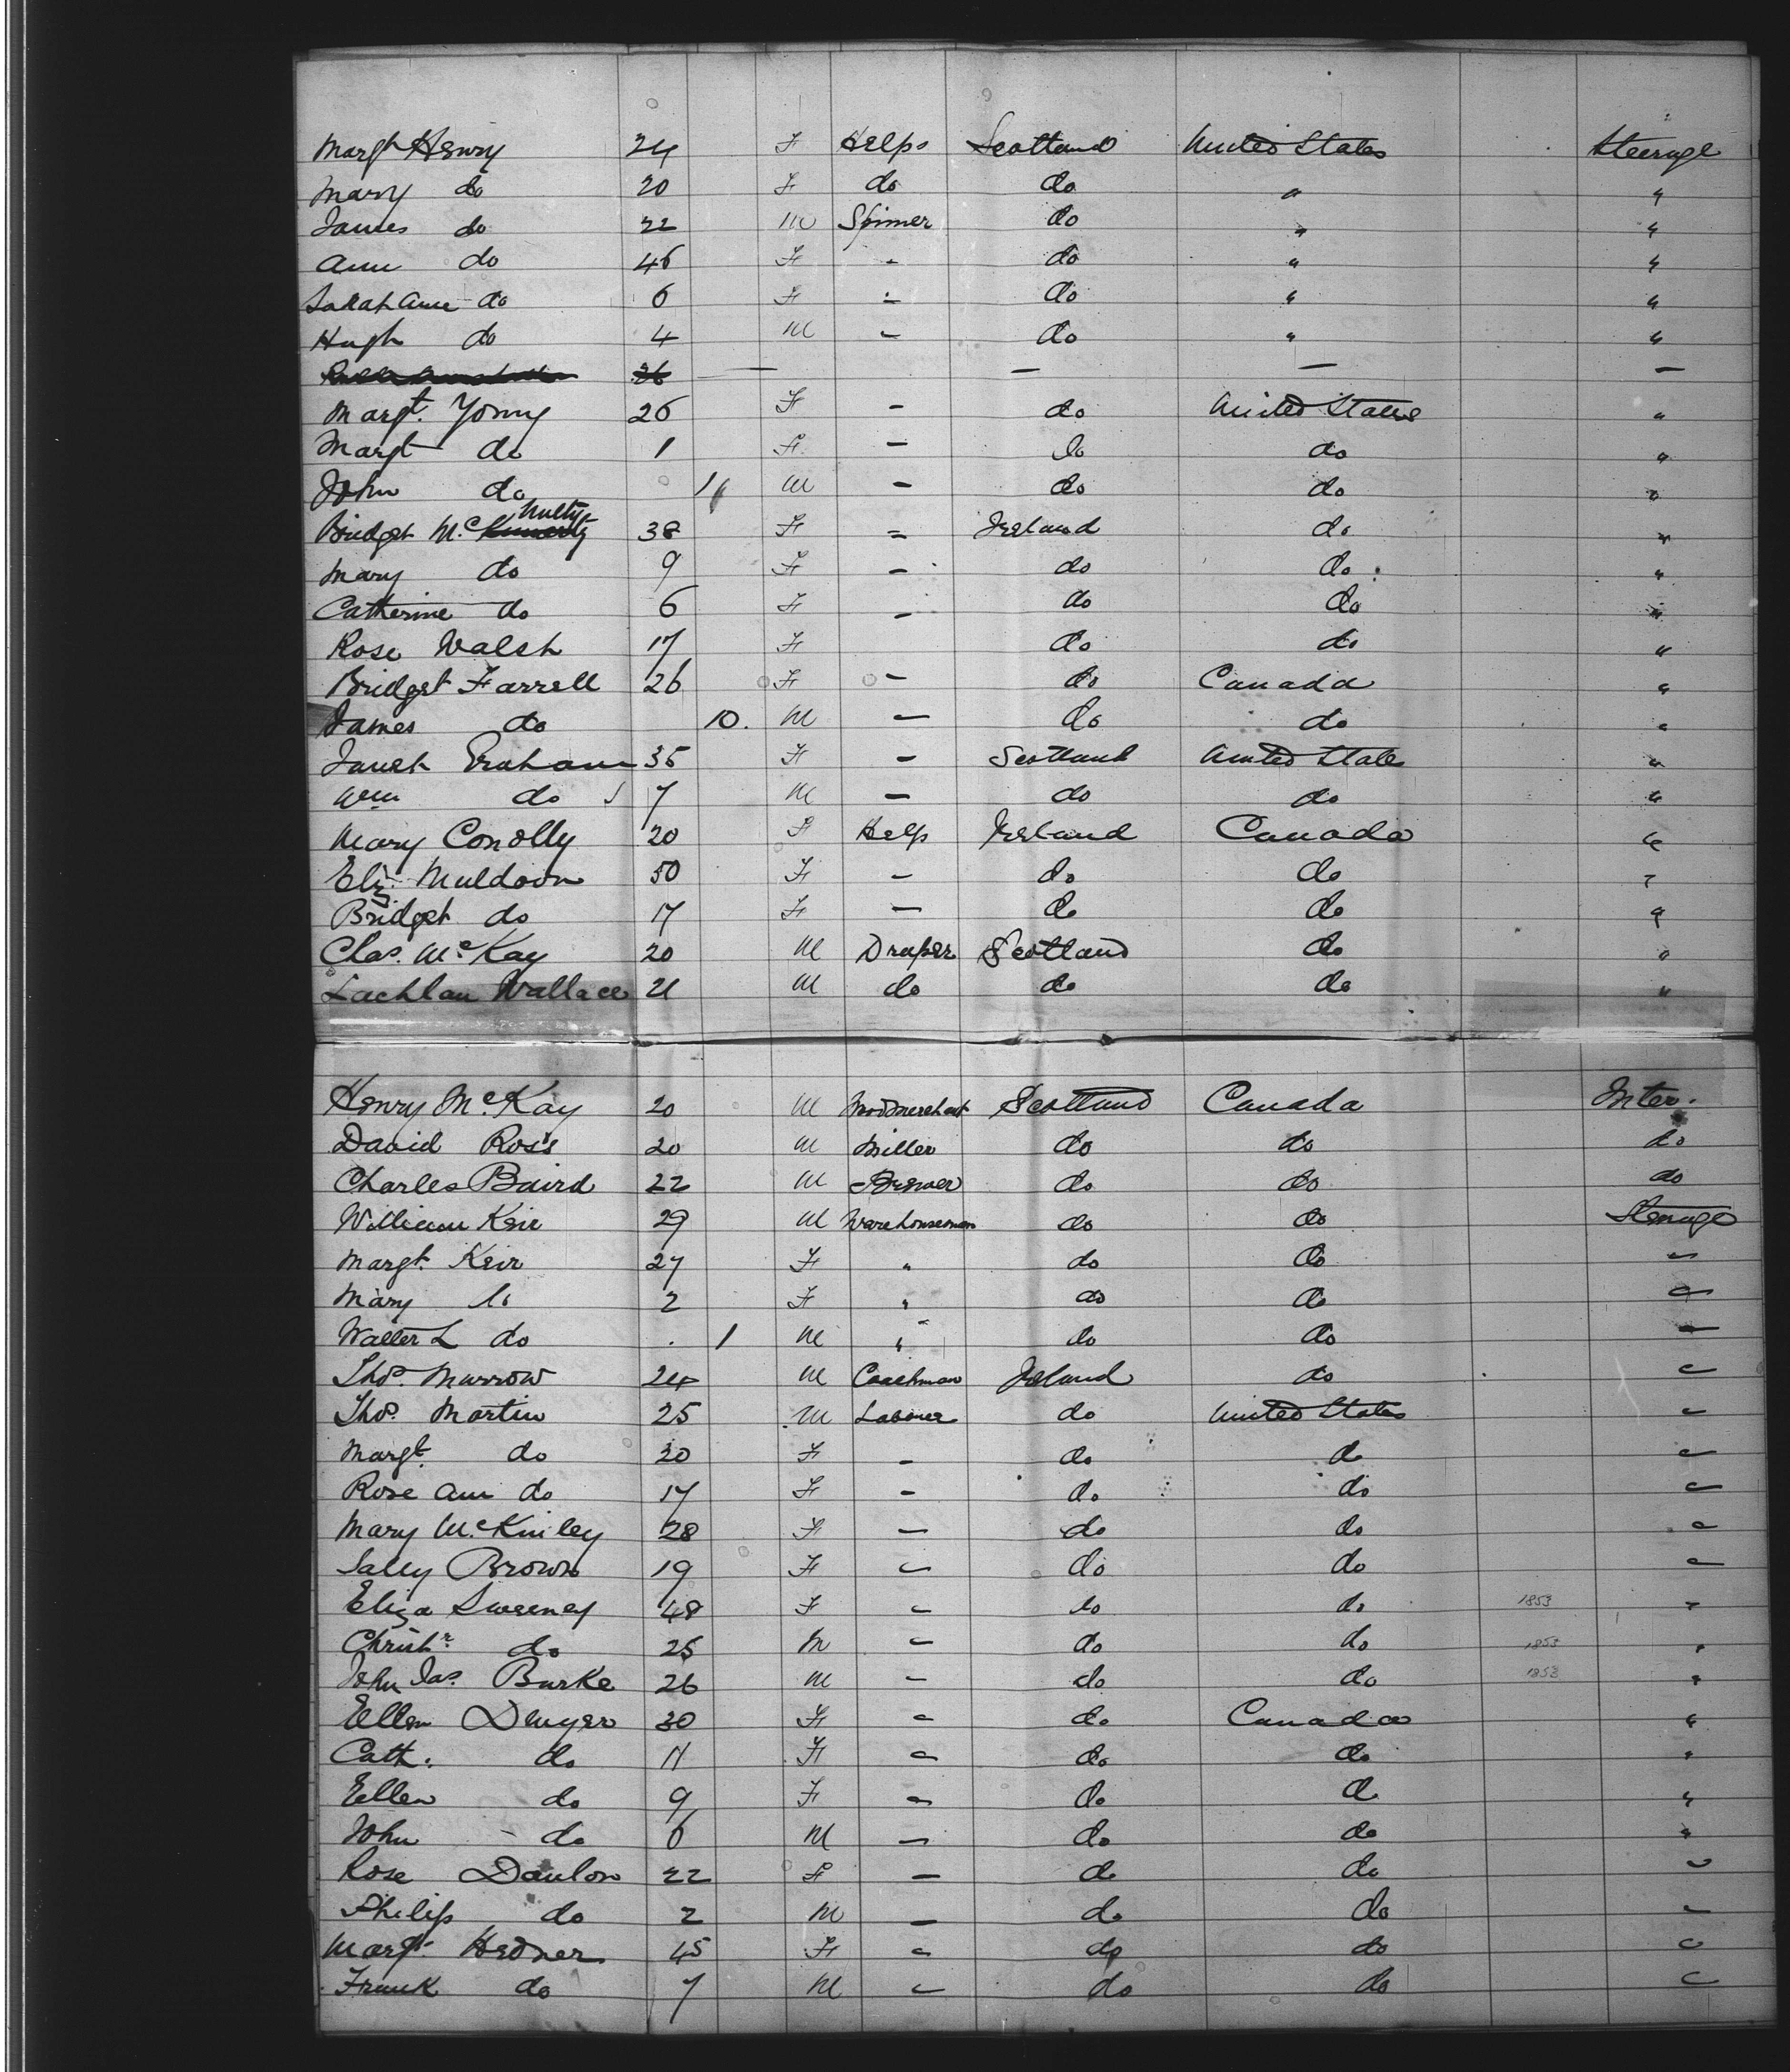 Margt Henry 24 F Helps Scotland United States Steerage
Mary do 20 F do do " "
James do 22 M Spinner do " "
Ann do 46 F - do " "
Sarah Ann do 6 F - do " "
Hugh do 4 M - do " "
26 — — — —
Margt. Young 26 F - do United States "
Margt do 1 F - do do "
John do 11 M - do do "
Bridget McNulty 38 F - Ireland do "
Mary do 9 F - do do "
Catherine do 6 F - do do "
Rose Walsh 17 F do do "
Bridget Farrell 26 F - do Canada "
James do 10. M - do do "
Janet Graham 35 F - Scotland United States "
Wm do 7 M - do do "
Mary Conolly 20 F Help Ireland Canada "
Eliz. Muldoon 50 F - do do "
Bridget do 17 F - do do "
Chas. McKay 20 M Draper Scotland do "
Lachlan Wallace 21 M do do do "
Henry McKay 20 M Scotland Canada Inter.
David Ross 20 M Miller do do do
Charles Baird 22 M Brewer do do do
William Keir 29 M Warehouseman do do Steerage
Margt. Keir 27 F " do do "
Mary do 2 F " do do "
Walter L do 1 M " do do "
Thos. Murrow 24 M Coachman Ireland do "
Thos. Martin 25 M Laborer do United States "
Margt. do 20 F - do do "
Rose Ann do 17 F - do do "
Mary McKinley 28 F - do do "
Sally Brown 19 F - do do "
Eliza Sweeney 48 F - do do 1853 "
Christr. do 25 M - do do 1853 "
John Jas. Burke 26 M - do do 1853 "
Ellen Dwyer 30 F - do Canada "
Cath. do 11 F - do do "
Ellen do 9 F - do do "
John do 6 M - do do "
Rose Danlon 22 F - do do "
Philip do 2 M - do do "
Margt. Hedner 45 F - do do "
Frank do 7 M - do do "